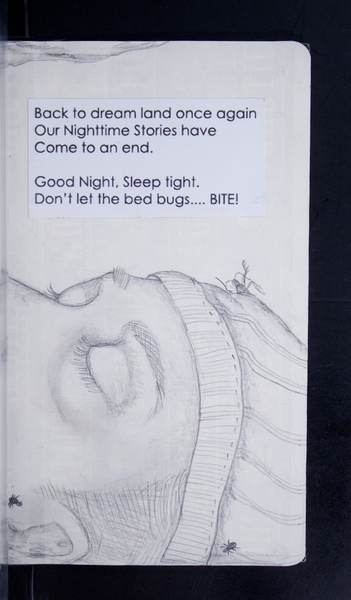 Back to dream land once again
Our Nighttime Stories have
Come to an end.
Good Night, Sleep tight.
Don't let the bed bugs.... BITE!